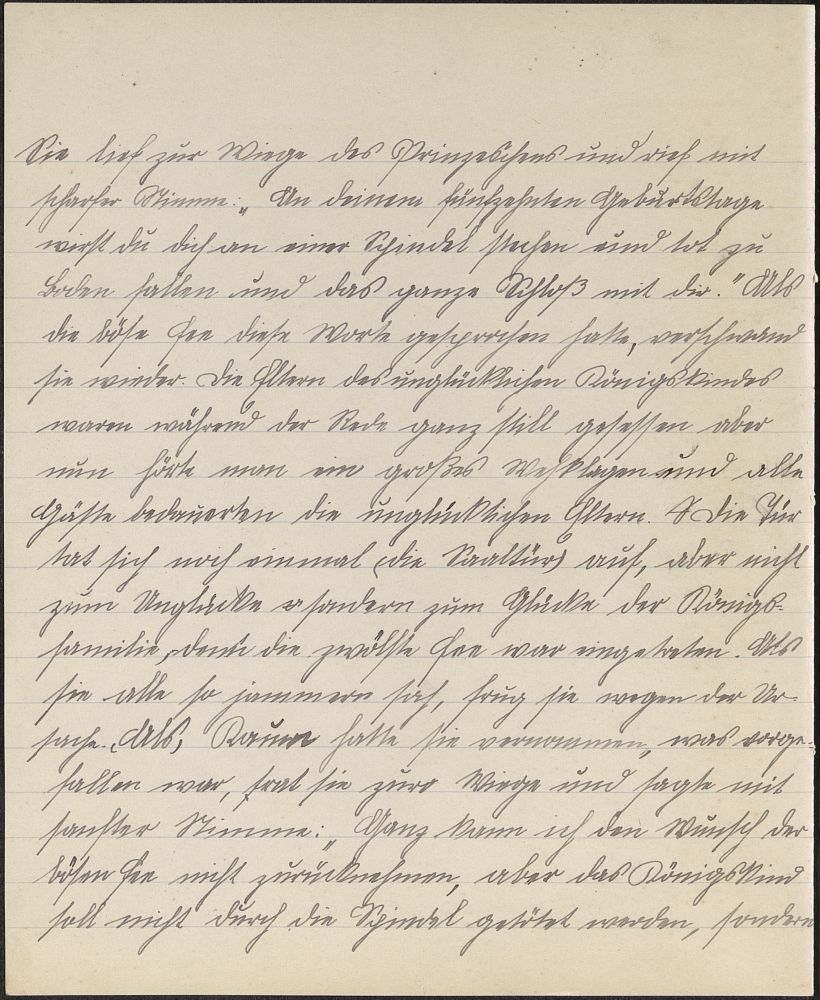 Sie lief zur Wiege des Prinzeßchens und rief mit
scharfer Stimme: „An deinem fünfzehnten Geburtstage
wirst du dich an einer Spindel stechen und tot zu
Boden fallen und das ganze Schloß mit dir." Als
die böse Fee diese Worte gesprochen hatte, verschwand
sie wieder. Die Eltern des unglücklichen Königskindes
waren während der Rede ganz still gesessen aber
nun hörte man ein großes Wehklagen und alle
Gäste bedauerten die unglücklichen Eltern. Die Tür
tat sich noch einmal (die Saaltür) auf, aber nicht
zum Unglücke sondern zum Glücke der Königs-
familie, denn die zwölfte Fee war eingetreten. Als
sie alle so jammern sah, frug sie wegen der Ur-
sache. (Als) Kaum hatte sie vernommen, was vorge-
fallen war, trat sie zur Wiege und sagte mit
sanfter Stimme: „Ganz kann ich den Wunsch der
bösen Fee nicht zurücknehmen, aber das Königskind
soll nicht durch die Spindel getötet werden, sondern